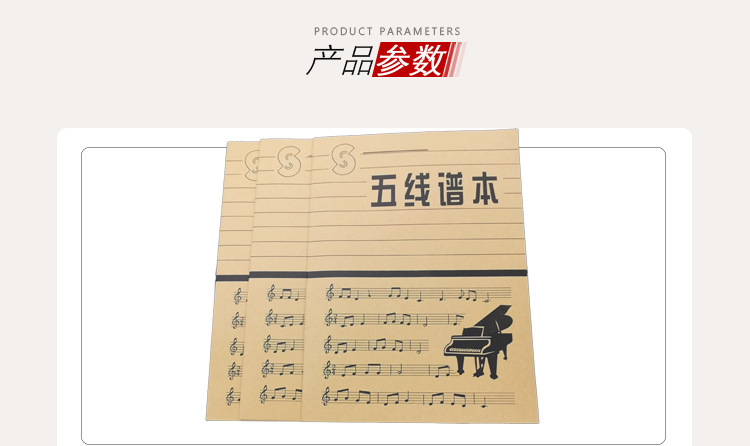 PRODUCT PARAMETERS
产品参数
五线谱本